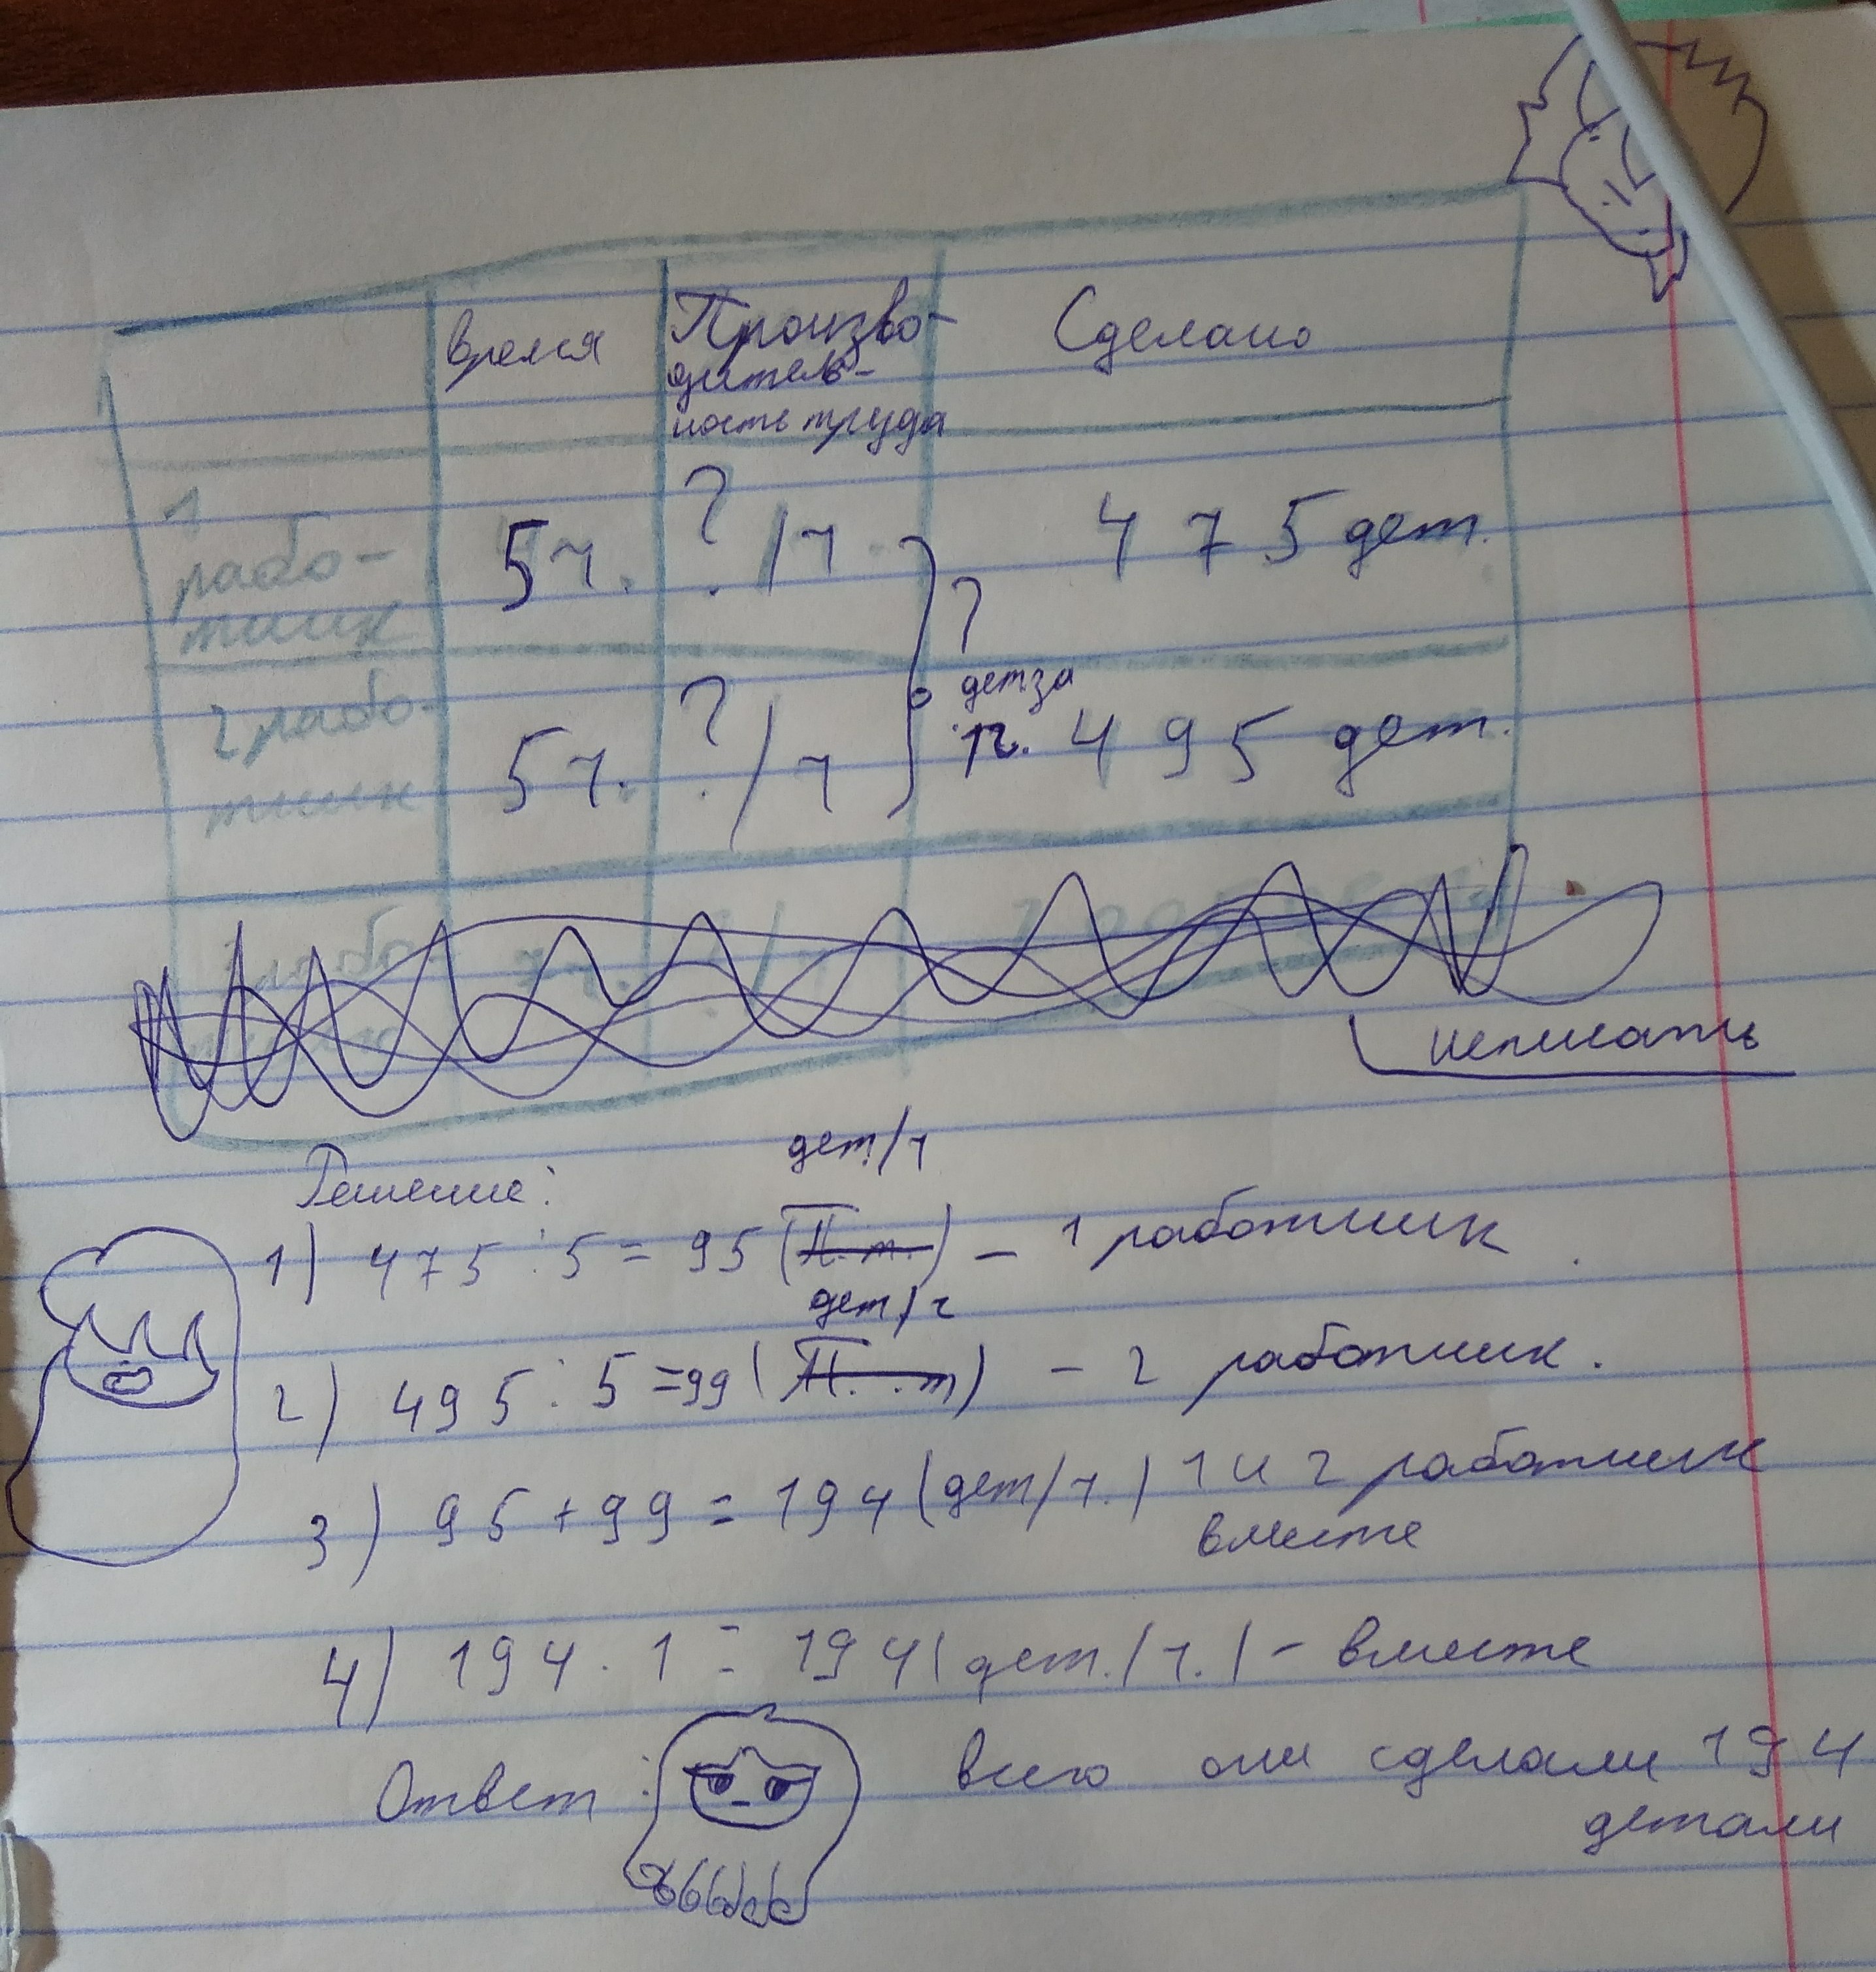 Время Произво- Сделано
дитель-
ность труда
1
рабо-
тник
5ч. ?/ч 475 дет.
?
дет за
1ч.
2 рабо-
тник
5ч. ?/ч 495 дет.
неписать
Решение:
дет/ч
1) 475 : 5 = 95 (П. т.) – 1 работник
дет/ч
2) 495 : 5 = 99 (П. т) – 2 работник.
3) 95 + 99 = 194 (дет/ч.) 1 и 2 работник
вместе
4) 194 · 1 = 194 (дет./ч.) – вместе
Ответ: всего они сделали 194
детали